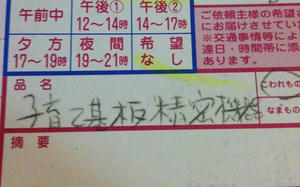 午前中
午後①
12〜14時
午後②
14〜17時
夕方
17〜19時
夜間
19〜21時
希望
なし
ご依頼主様の
にお届けさせてい
※交通事情等によ
達日・時間帯に添
あります。
品名
子育て基板精密機器
こわれもの
なまもの
摘要